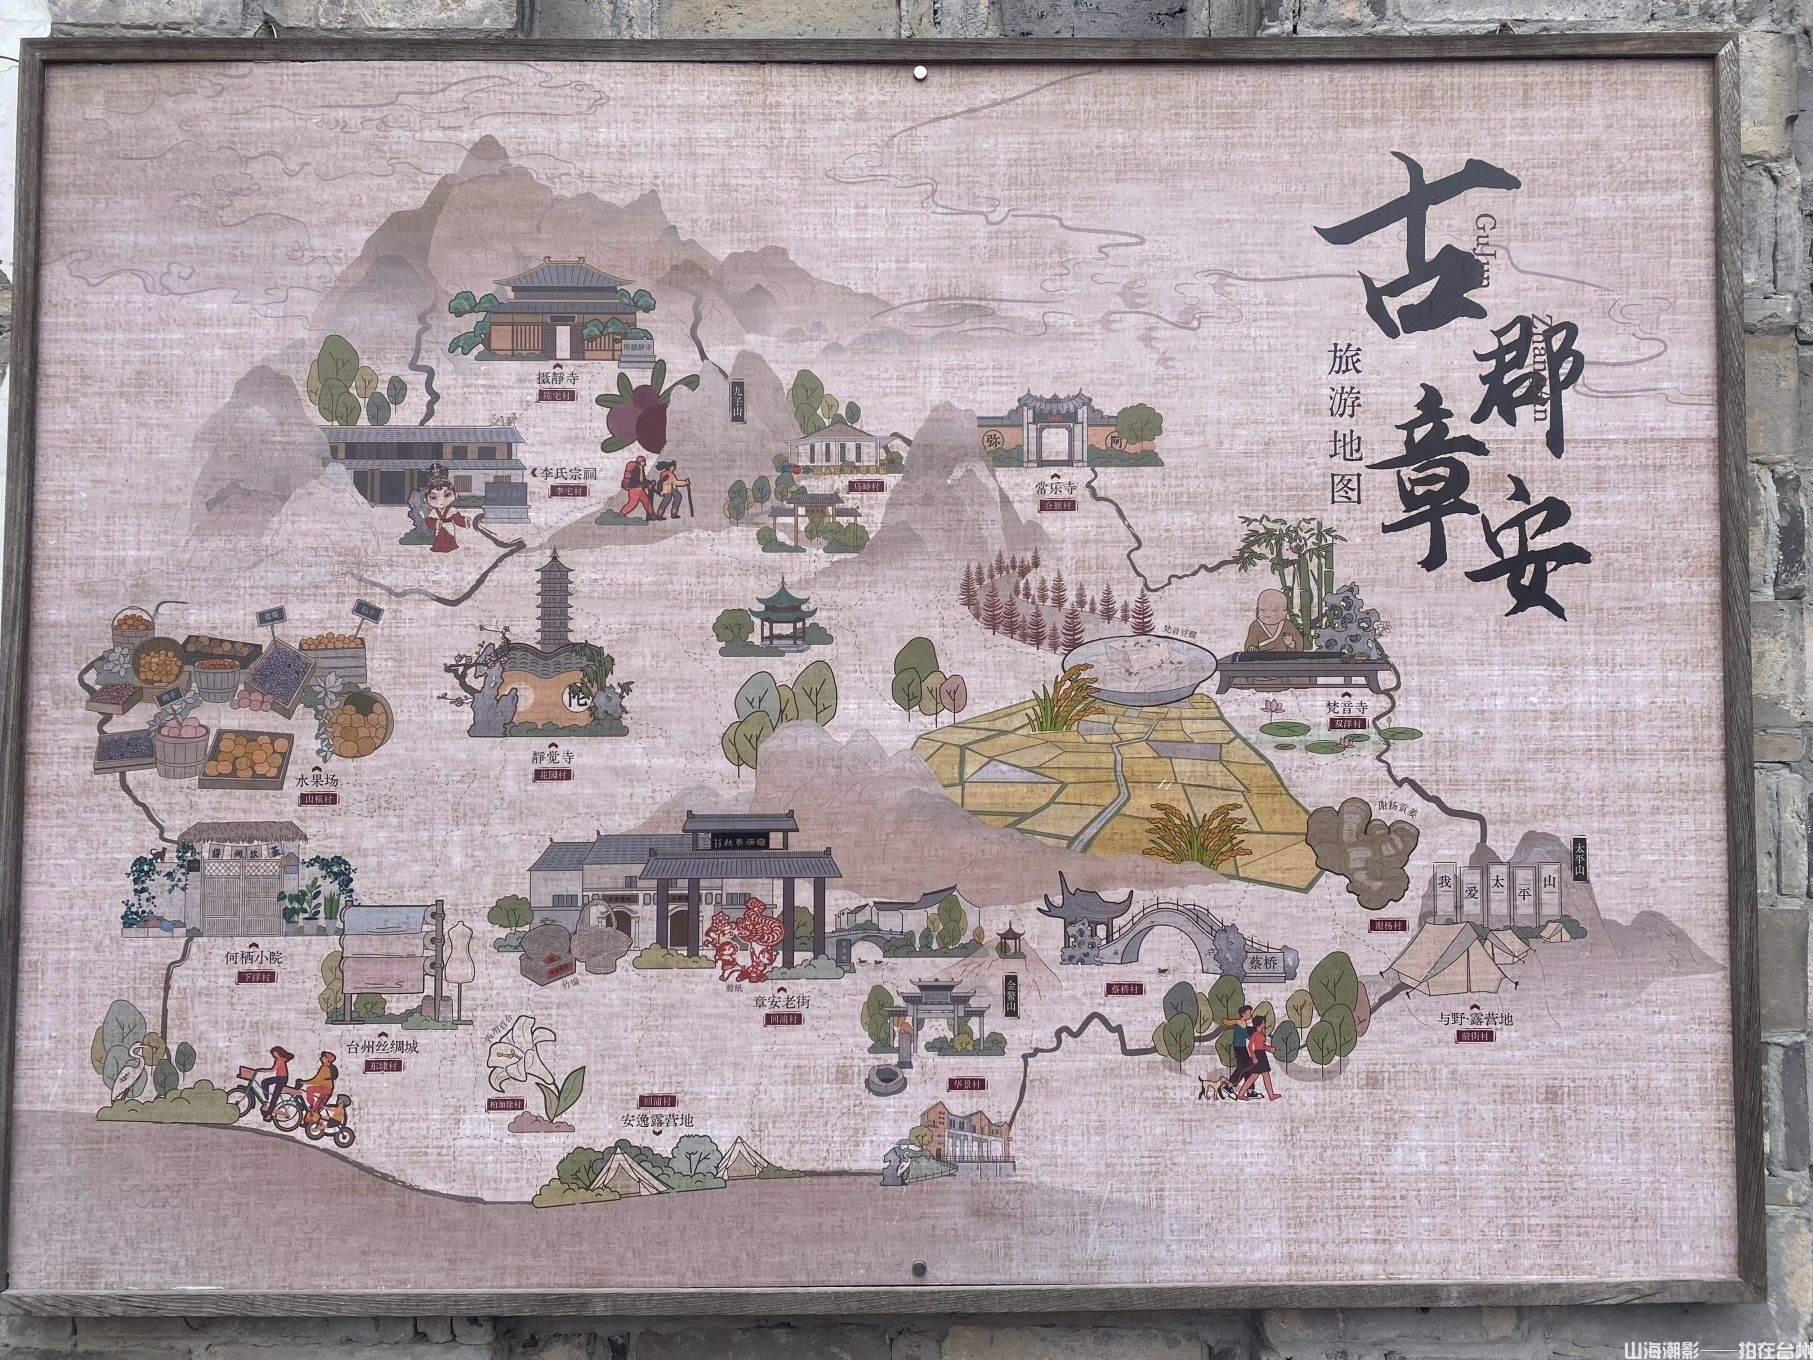 古郡章安
GuJun
ZhangAn
旅游地图
摄静寺
陈宅村
九子山
李氏宗祠
李宅村
马峰村
弥
阿
常乐寺
合旗村
梵音豆腐
梵音寺
双洋村
陀
静觉寺
花园村
水果场
山横村
何栖小院
下洋村
台州丝绸城
东埭村
竹编
剪纸
章安老街
回浦村
谢杨贡姜
谢杨村
太平山
我爱太平山
与野·露营地
前街村
蔡桥
蔡桥村
金鳌山
华景村
柏加除村
回浦村
安逸露营地
山海潮影——拍在台州